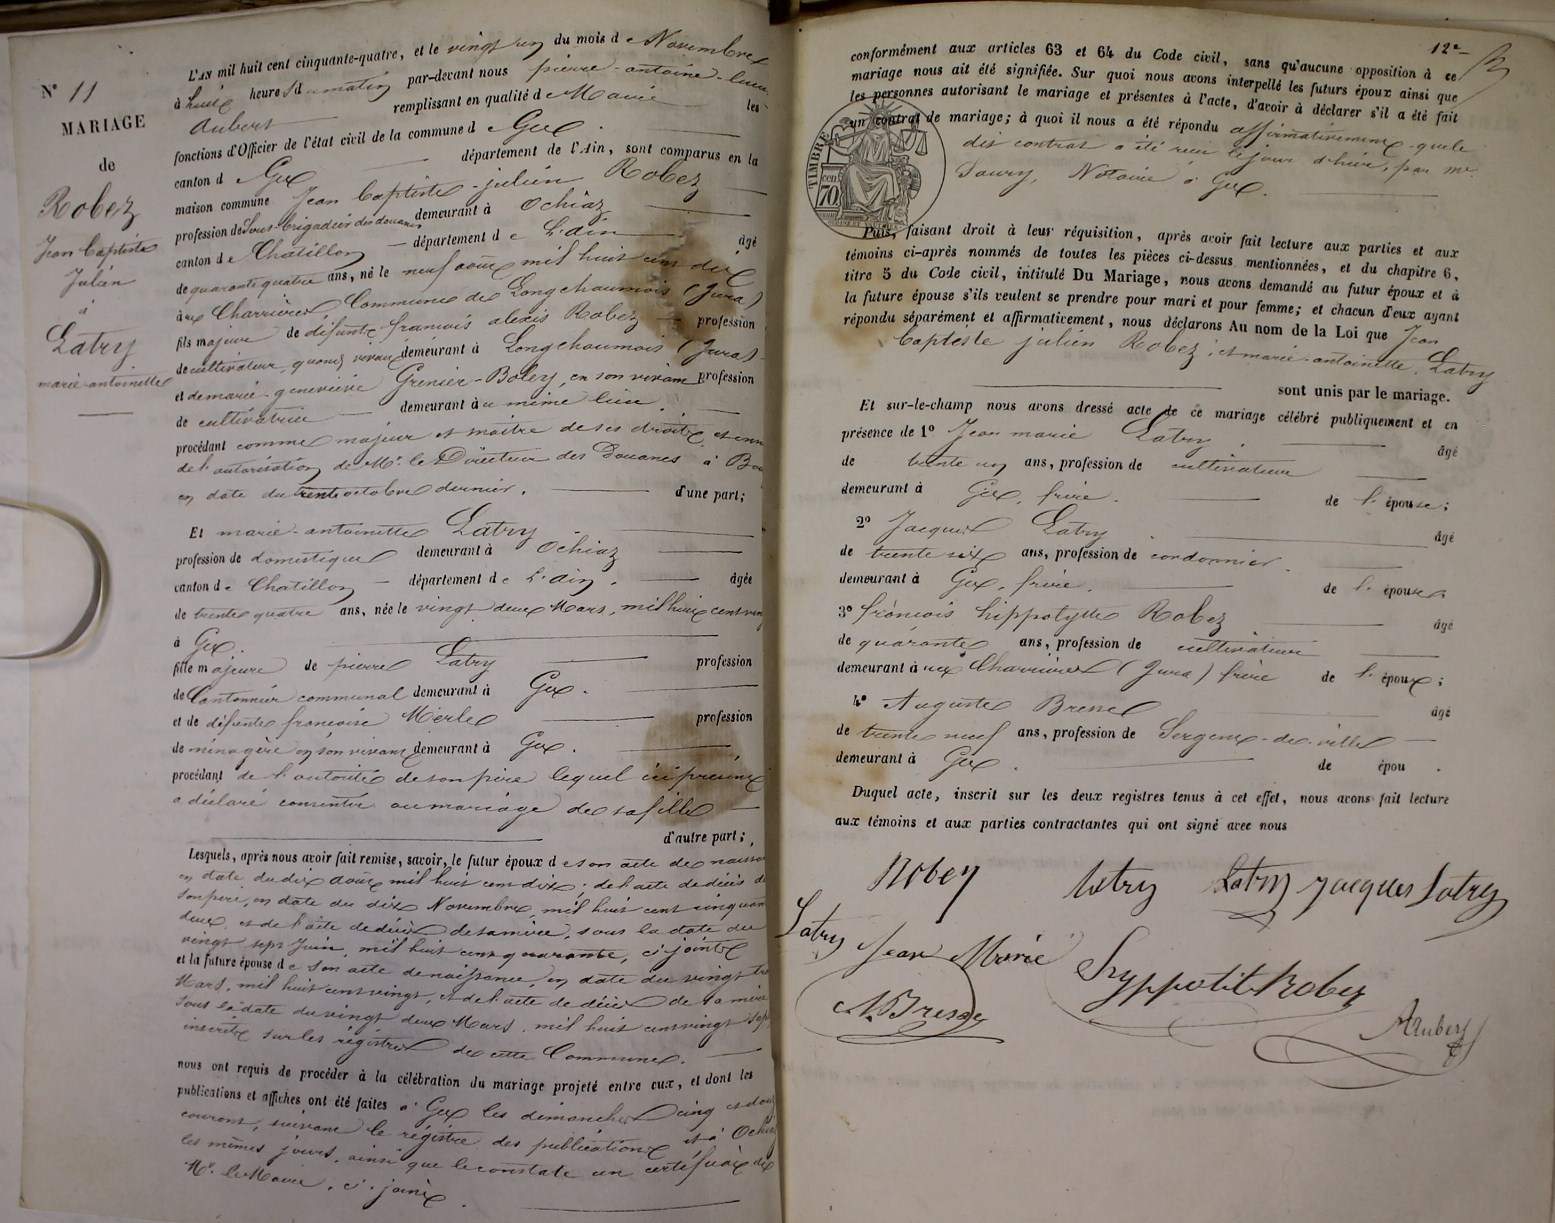 N° 11
MARIAGE
de
Robez
Jean Baptiste
Julien
à
Latry
marie-antoinette
L'AN mil huit cent cinquante-quatre, et le vingt un du mois de Novembre
à huit heures du matin par-devant nous pierre-antoine-
Aubert remplissant en qualité de Maire les
fonctions d'Officier de l'état civil de la commune de Gex.
canton de Gex département de l'Ain, sont comparus en la
maison commune Jean Baptiste-julien Robez
profession de Sous-brigadier des douanes demeurant à Ochiaz
canton de Chatillon département de L'ain âgé
de quarante quatre ans, né le neuf août mil huit cent dix
aux Charrières Commune de Longchaumois (Jura)
fils majeur de défunt francois alexis Robez profession
de cultivateur, quand vivait demeurant à Longchaumois (Jura)
et de marie-genevieve Grenier-Boley, en son vivant profession
de cultivatrice demeurant au même lieu.
procédant comme majeur et maître de ses droits, et
de l'autorisation de Mr. le Directeur des Douanes à
en date du trente octobre dernier. d'une part;
Et marie-antoinette Latry
profession de domestique demeurant à Ochiaz
canton de Chatillon département de L'ain. âgée
de trente quatre ans, née le vingt deux Mars, mil huit cent vingt
à Gex.
fille majeure de pierre Latry profession
de Cantonnier communal demeurant à Gex.
et de défunte francoise Merle profession
de ménagère en son vivant demeurant à Gex.
procédant de l'autorité de son père lequel ici présent
a déclaré consentir au mariage de sa fille
d'autre part;
Lesquels, après nous avoir fait remise, savoir, le futur époux de son acte de
en date du dix août mil huit cent dix; de l'acte de décès de
son père, en date du dix Novembre, mil huit cent cinquante
deux, et de l'acte de décès de sa mère, sous la date du
vingt sept Juin, mil huit cent quarante, ci-joints
et la future épouse de son acte de naissance, en date du vingt
Mars, mil huit cent vingt, et de l'acte de décès de sa mère
sous la date du vingt deux Mars, mil huit cent vingt sept
inscrits sur les régistres de cette Commune.
nous ont requis de procéder à la célébration du mariage projeté entre eux, et dont les
publications et affiches ont été faites à Gex les dimanches cinq et douze
courant, suivant le régistre des publications et à Ochiaz
les mêmes jours, ainsi que le constate un certificat de
Mr. le Maire, ci-joint.
12e
conformément aux articles 63 et 64 du Code civil, sans qu'aucune opposition à ce
mariage nous ait été signifiée. Sur quoi nous avons interpellé les futurs époux ainsi que
les personnes autorisant le mariage et présentes à l'acte, d'avoir à déclarer s'il a été fait
un contrat de mariage; à quoi il nous a été répondu affirmativement que le
dit contrat a été recu le jour d'hier, par me
Notaire à Gex.
TIMBRE
70
Puis, faisant droit à leur réquisition, après avoir fait lecture aux parties et aux
témoins ci-après nommés de toutes les pièces ci-dessus mentionnées, et du chapitre 6,
titre 5 du Code civil, intitulé Du Mariage, nous avons demandé au futur époux et à
la future épouse s'ils veulent se prendre pour mari et pour femme; et chacun d'eux ayant
répondu séparément et affirmativement, nous déclarons Au nom de la Loi que Jean
baptiste julien Robez, et marie-antoinette Latry
sont unis par le mariage.
Et sur-le-champ nous avons dressé acte de ce mariage célébré publiquement et en
présence de 1° Jean marie Latry. âgé
de trente un ans, profession de cultivateur
demeurant à Gex, frère. de l'épouse;
2° Jacques Latry. âgé
de trente six ans, profession de cordonnier.
demeurant à Gex, frère. de l'épouse
3° francois hippolyte Robez âgé
de quarante ans, profession de cultivateur
demeurant aux Charrières (Jura) frère de l'époux;
4° Auguste Bresse âgé
de trente neuf ans, profession de Sergent-de-ville
demeurant à Gex. de épou .
Duquel acte, inscrit sur les deux registres tenus à cet effet, nous avons fait lecture
aux témoins et aux parties contractantes qui ont signé avec nous
Robez latry Latry Jacques Latry
Latry Jean Marie hyppolit Robez
A. Bresse
Aubert